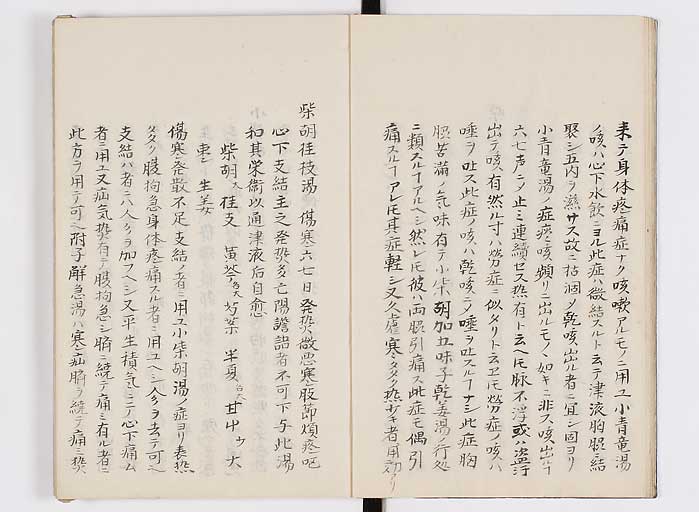 来テ身体疼痛症ナク咳嗽アルモノニ用ユ小青竜湯
ノ咳ハ心下水飲ニヨル此症ハ微結スルト云テ津液胸脇ニ結
聚シ五内ヲ滋サス故ニ枯涸〆乾咳出ル者ニ宜シ固ヨリ
小青竜湯ノ症痰咳頻リニ出ルモノヽ如キニ非ス咳出ル
六七声ニ〆止ミ連続セス熱有ト云ヘ𪜈脉不浮或ハ盗汗
出テ咳有然ル寸ハ労症ニ似タリト云𪜈労症ノ咳ハ
唾ヲ吐ス此症ノ咳ハ乾咳ニ〆唾ヲ吐スルナシ此症胸
脇苦満ノ気味有テ小柴胡加五味子乾姜湯ノ行処
ニ類スルアルヘシ然レ𪜈彼ハ両脇引痛ス此症モ偶引
痛スルアレ𪜈其症軽シ又久虚寒タクク熱少キ者用効アリ
柴胡桂枝湯 傷寒六七日発熱微悪寒肢節煩疼呕
心下支結主之発熱多亡陽譫語者不可下与此湯
和其栄衛以通津液后自愈
柴胡大桂支 黄芩各大芍薬 半夏各大 甘中ウ大
枣シ生姜
傷寒発散不足支結ノ者ニ用ユ小柴胡湯ノ症ヨリ表熱
タクク腹拘急身体疼痛スル者ニ用ユヘシ人参ヲ去テ可之
支結ハ者ニハ人参ヲ加フヘシ又平生積気ニテ心下痛ム
者ニ用ユ又疝気熱有テ腹拘急シ脇ニ縫テ痛ミ有ル者ニ
此方ヲ用テ可之附子解急湯ハ寒疝脇ヲ縫テ痛ミ熱